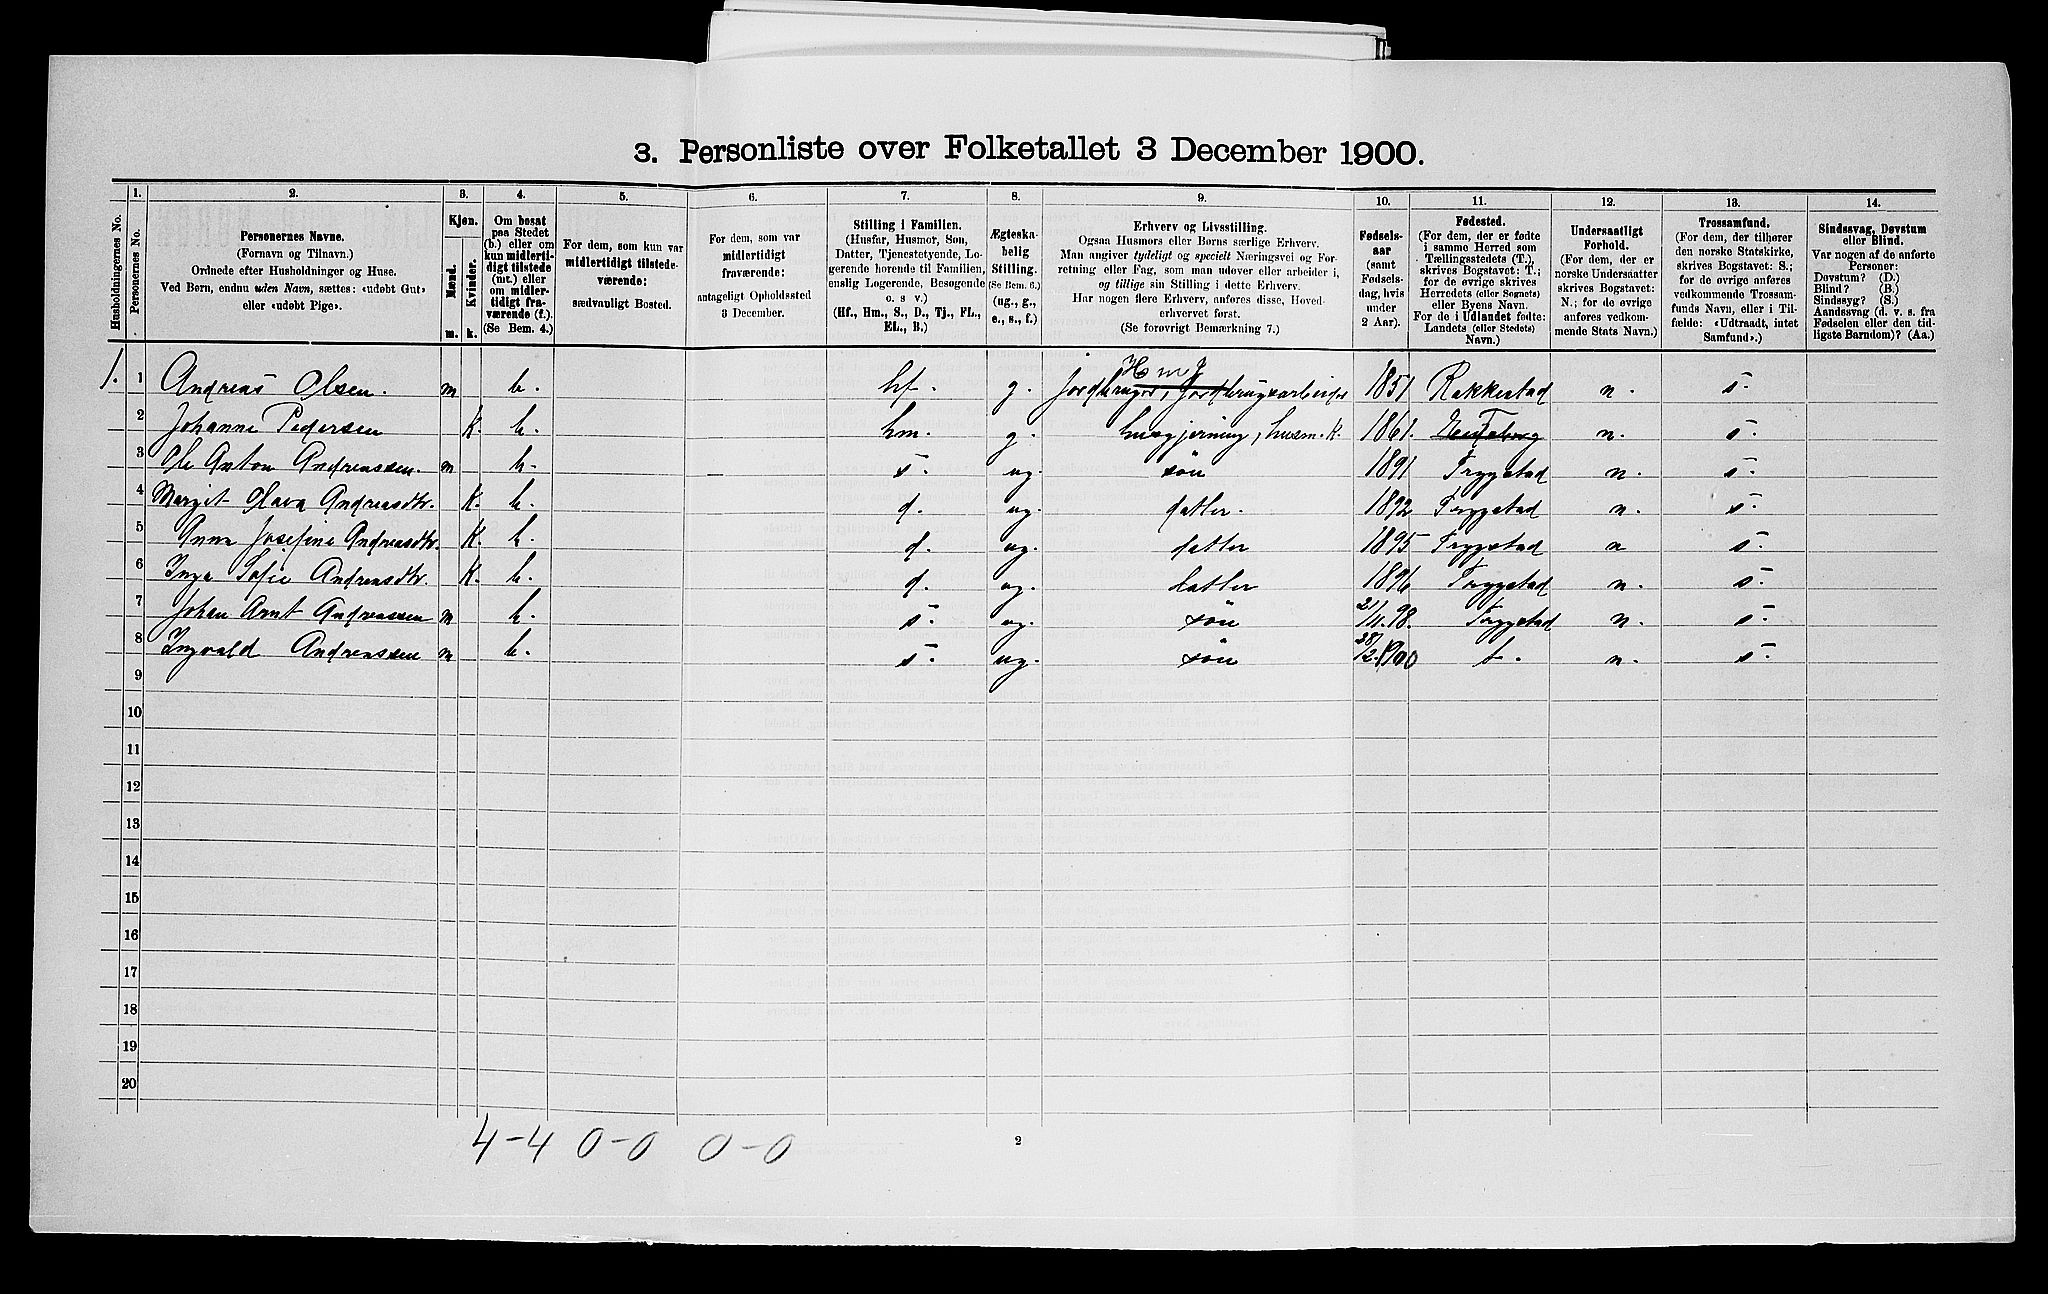 3. Personliste over Folketallet 3 December 1900.
Husholdningernes No.
1. Personernes No.
2. Personernes Navne. (Fornavn og Tilnavn.) Ordnede efter Husholdninger og Huse. Ved Børn, endnu uden Navn, sættes: «udøbt Gut» eller «udøbt Pige».
3. Kjøn. Mænd. m. Kvinder. k.
4. Om bosat paa Stedet (b.) eller om kun midlertidigt tilstede (mt.) eller om midlertidigt fraværende (f.). (Se Bem. 4.)
5. For dem, som kun var midlertidigt tilstedeværende: sædvanligt Bosted.
6. For dem, som var midlertidigt fraværende: antageligt Opholdssted 3 December.
7. Stilling i Familien. (Husfar, Husmor, Søn, Datter, Tjenestetyende, Logerende hørende til Familien, enslig Logerende, Besøgende o. s v.) (Hf., Hm., S., D., Tj., FL., EL., B.)
8. Ægteskabelig Stilling. (Se Bem. 6.) (ug., g., e., s., f.)
9. Erhverv og Livsstilling. Ogsaa Husmors eller Børns særlige Erhverv. Man angiver tydeligt og specielt Næringsvei og Forretning eller Fag, som man udøver eller arbeider i, og tillige sin Stilling i dette Erhverv. Har nogen flere Erhverv, anføres disse, Hovederhvervet først. (Se forøvrigt Bemærkning 7.)
10. Fødselsaar (samt Fødselsdag, hvis under 2 Aar).
11. Fødested. (For dem, der er fødte i samme Herred som Tællingsstedets (T.), skrives Bogstavet: T.; for de øvrige skrives Herredets (eller Sognets) eller Byens Navn. For de i Udlandet fødte: Landets (eller Stedets) Navn.)
12. Undersaatligt Forhold. (For dem, der er norske Undersaatter skrives Bogstavet: N.; for de øvrige anføres vedkommende Stats Navn.)
13. Trossamfund. (For dem, der tilhører den norske Statskirke, skrives Bogstavet: S.; for de øvrige anføres vedkommende Trossamfunds Navn, eller i Tilfælde: «Udtraadt, intet Samfund».)
14. Sindssvag, Døvstum eller Blind. Var nogen af de anførte Personer: Døvstum? (D.) Blind? (B.) Sindssyg? (S.) Aandssvag (d. v. s. fra Fødselen eller den tidligste Barndom)? (Aa.)
1. 1 Andreas Olsen. m b. hf. g. Jordbruger, Jordbrugsarbeider 1851 Rakkestad n. s.
2 Johanne Pedersen K. b. hm. g. husgjerning, husm. K. 1861. n. s.
3 Ole Anton Andreassen. m b. s. ug. søn 1891 Trygstad n. s.
4 Margit Olava Andreasdtr. K. b. d. ug. datter. 1892 Trygstad n. s.
5 Anna Josefine Andreasdtr. K. b. d. ug. datter 1895 Trygstad n s.
6 Inga Sofie Andreasdtr. K. b. d. ug. datter 1896 Trygstad n. s.
7 Johan Arnt Andreassen m b. s. ug. søn 21/4.98. Trygstad n. s.
8 Ingvald Andreassen m b. s. ug. søn 28/2.1900 t. n. s.
9
10
11
12
13
14
15
16
17
18
19
20
4-4 0-0 0-0
2